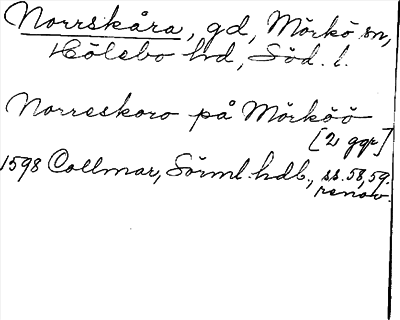 Norrskåra, gd, Mörkö sn,
Hölebo hd, Söd. l.
Norreskoro på Mörköö
[2 ggr]
1598 Collmar, Sörml. hdb., ss. 58, 59.
renov.